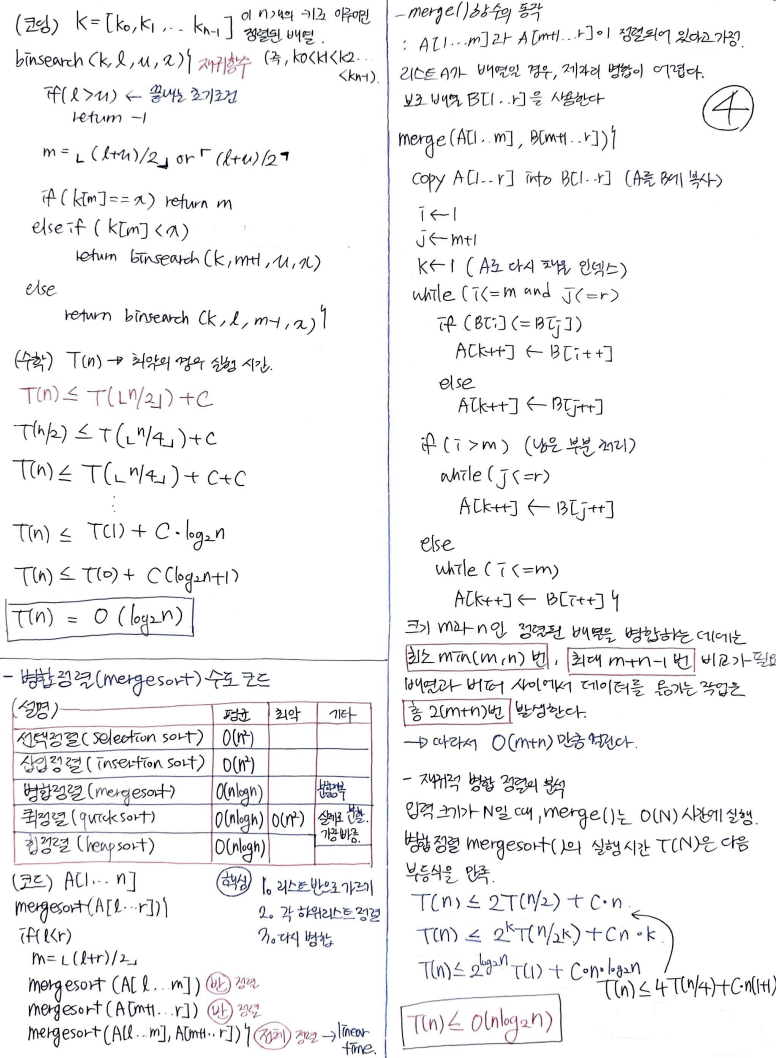 (코딩) K = [k0, k1, ... kn-1] 이 n개의 키로 이루어진
정렬된 배열.
(즉, k0<k1<k2...
<kn-1).
binsearch (k, l, u, x){ 재귀함수
if(l>u) ← 끝내는 초기조건
return -1
m = ⌊(l+u)/2⌋ or ⌈(l+u)/2⌉
if (k[m]==x) return m
else if (k[m]<x)
return binsearch (k, m+1, u, x)
else
return binsearch (k, l, m-1, x)}
(수학) T(n) → 최악의 경우 실행 시간.
T(n) ≤ T(⌊n/2⌋) + C
T(n/2) ≤ T(⌊n/4⌋) + C
T(n) ≤ T(⌊n/4⌋) + C+C
⋮
T(n) ≤ T(1) + C·log₂n
T(n) ≤ T(0) + C(log₂n+1)
T(n) = O(log₂n)
- 병합정렬(mergesort) 수도 코드
(설명) 평균 최악 기타
선택정렬(selection sort) O(n²)
삽입정렬(insertion sort) O(n²)
병합정렬(mergesort) O(nlogn) 분할정복
퀵정렬(quicksort) O(nlogn) O(n²) 실제로 분할.
가장 빠름.
힙정렬(heapsort) O(nlogn)
(코드) A[1...n]
핵심 1. 리스트 반으로 가르기
2. 각 하위리스트 정렬
3. 다시 병합
mergesort(A[l...r]){
if(l<r)
m=⌊(l+r)/2⌋
mergesort (A[l...m]) 반 정렬
mergesort (A[m+1...r]) 반 정렬
mergesort(A[l...m], A[m+1...r])} 전체 정렬 → linear
time.
- merge()함수의 동작
: A[1...m]과 A[m+1...r]이 정렬되어 있다고 가정.
리스트 A가 배열인 경우, 제자리 병합이 어렵다.
보조 배열 B[1...r]을 사용한다
④
merge(A[1...m], B[m+1...r]){
copy A[1...r] into B[1...r] (A를 B에 복사)
i←1
j←m+1
k←1 (A로 다시 채울 인덱스)
while (i<=m and j<=r)
if (B[i]<=B[j])
A[k++] ← B[i++]
else
A[k++] ← B[j++]
if (i>m) (남은 부분 처리)
while (j<=r)
A[k++] ← B[j++]
else
while (i<=m)
A[k++] ← B[i++] }
크기 m과 n인 정렬된 배열을 병합하는 데에는
최소 min(m,n) 번, 최대 m+n-1 번 비교가 필요
배열과 버퍼 사이에서 데이터를 옮기는 작업은
총 2(m+n)번 발생한다.
→ 따라서 O(m+n) 만큼 걸린다.
- 재귀적 병합 정렬의 분석
입력 크기가 N일 때, merge()는 O(N) 시간에 실행.
병합 정렬 mergesort()의 실행시간 T(N)은 다음
부등식을 만족.
T(n) ≤ 2T(n/2) + C·n
T(n) ≤ 2ᵏT(n/2ᵏ) + Cn·k
T(n) ≤ 2^log₂n T(1) + C·n·log₂n
T(n) ≤ 4T(n/4)+C·n(1+1)
T(n) ≤ O(nlog₂n)